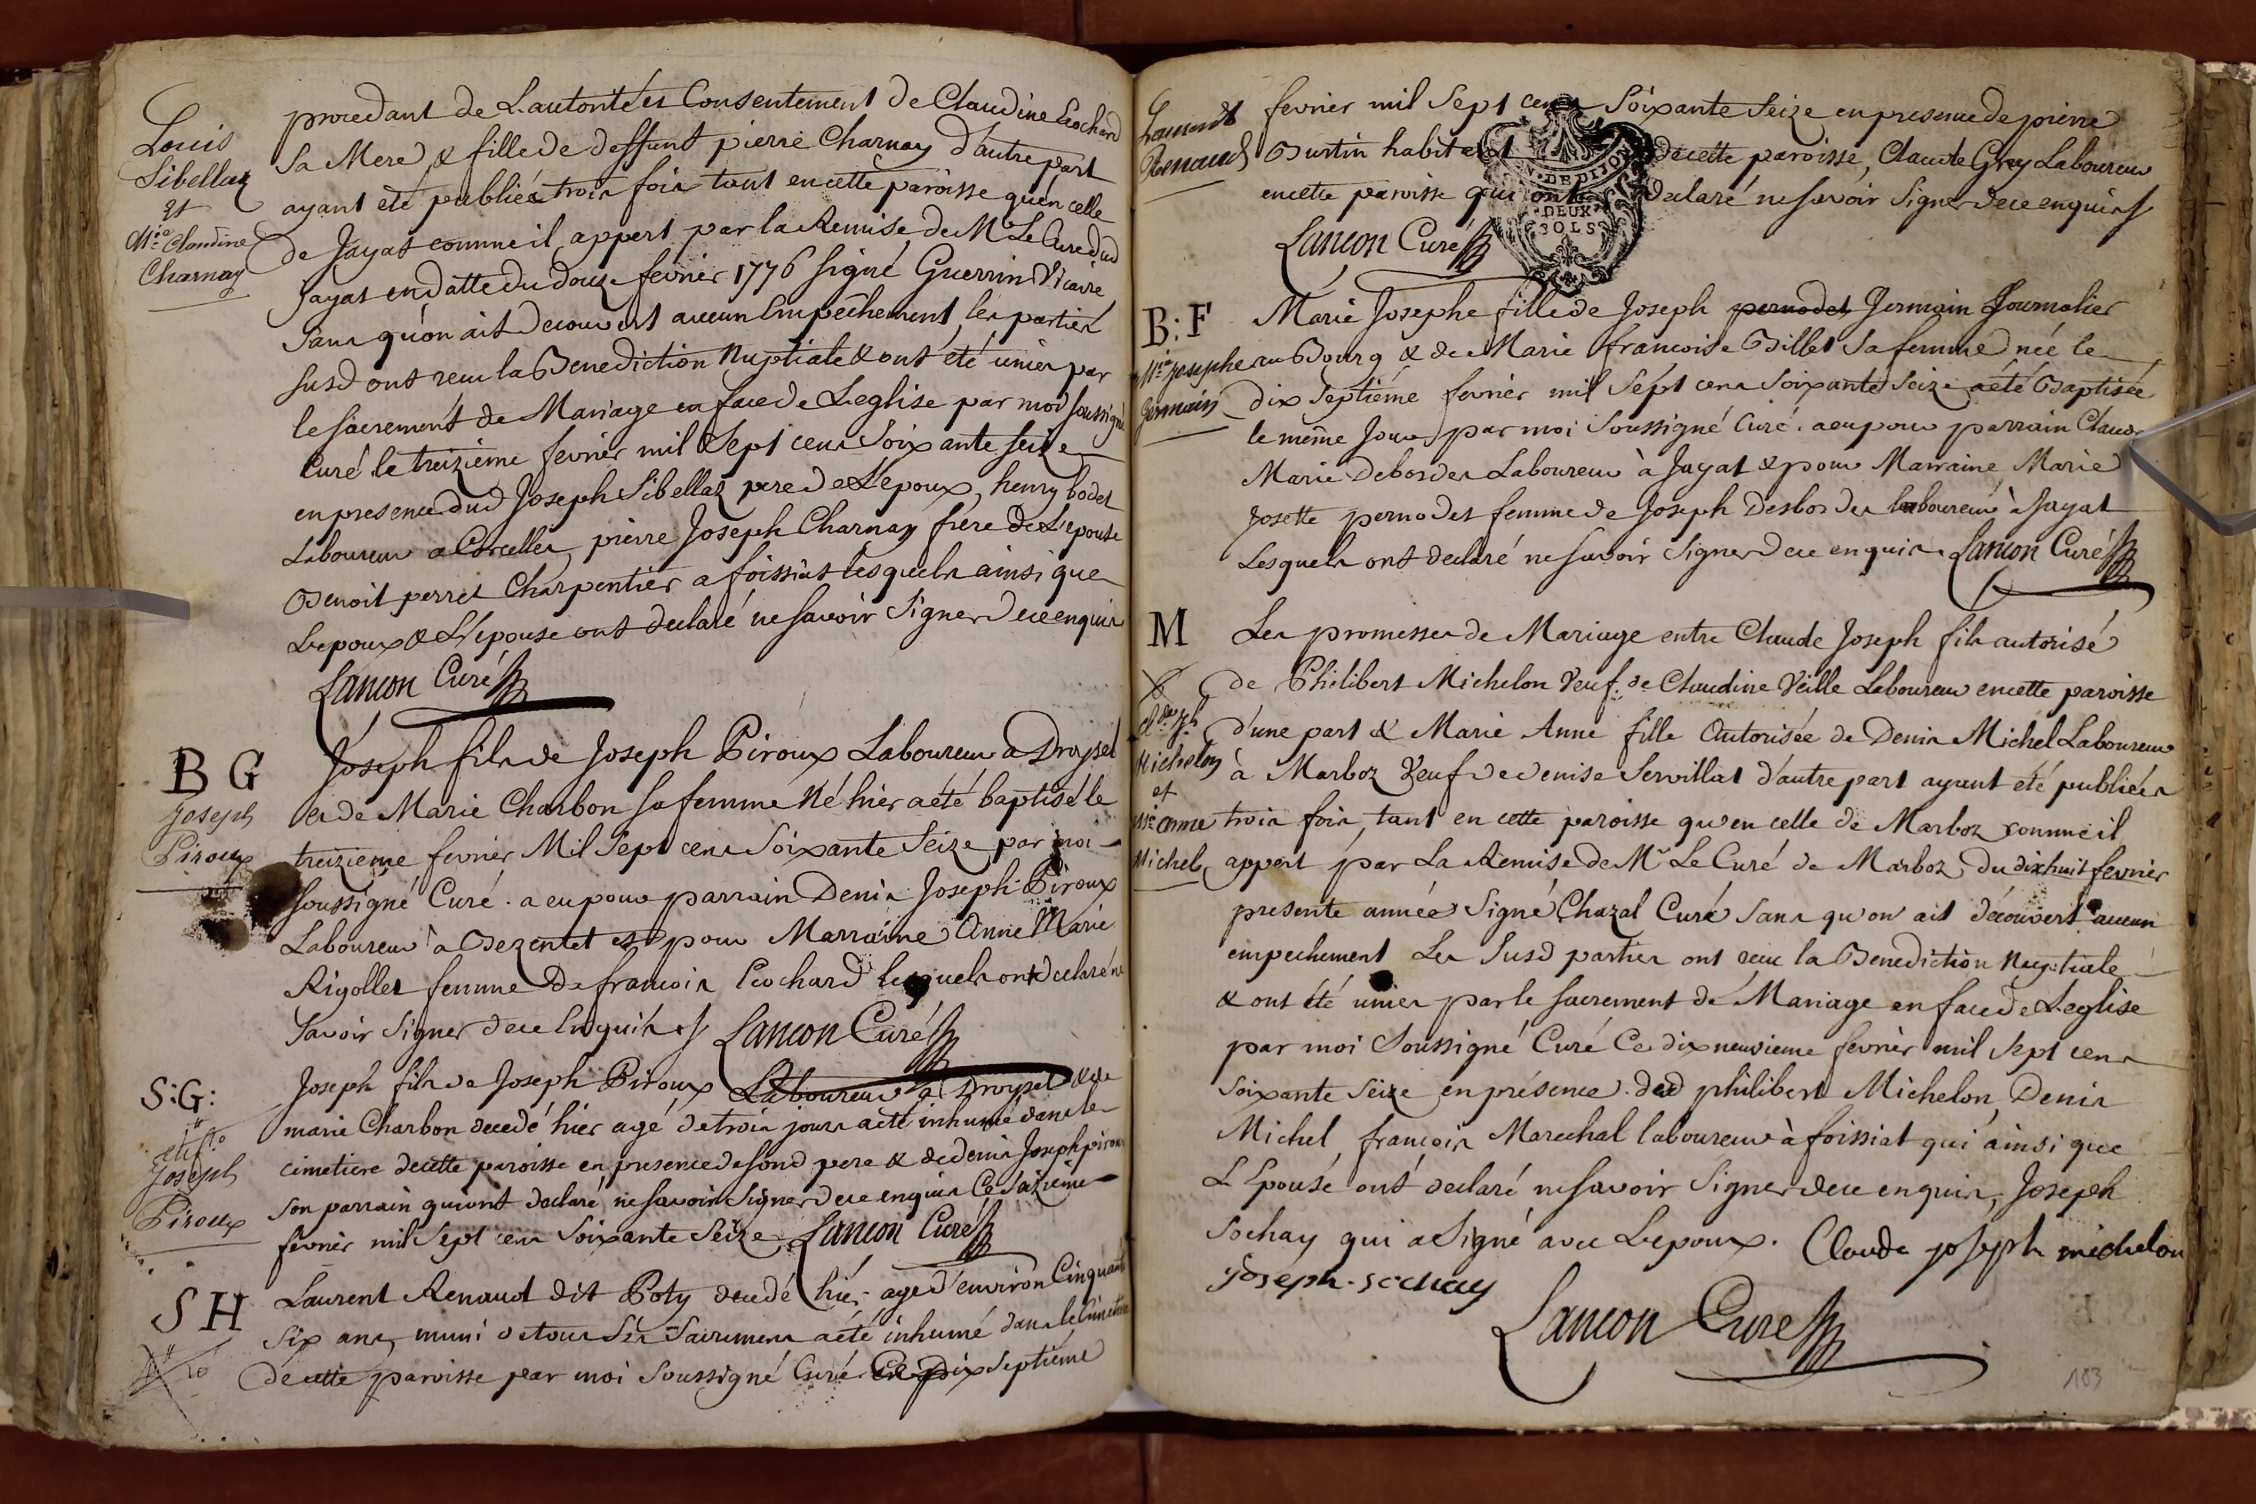 Louis
Sibellaz
et
Mie Claudine
Charnay
procedant de L'autorité et Consentement de Claudine Cochard
Sa Mere & fille de deffunt pierre Charnay d'autre part
ayant eté publiéz trois fois tant en cette paroisse qu'en celle
de Jayat comme il appert par la Remise de Mr Le Curé dud
Jayat en datte du douze fevrier 1776 signé Guerrin Vicaire
sans qu'on ait decouvert aucun Empêchement, les parties
susd ont recu la Benediction Nuptiale & ont été unies par
le sacrement de Mariage en face de L'eglise par moi soussigné
Curé le treizieme fevrier mil Sept cens Soixante seize
en presence dud Joseph Sibellaz pere de L'epoux, henry bodet
Laboureur a Corcelles, pierre Joseph Charnay frere de L'epouse
Benoit perret Charpentier a foissiat lesquels ainsi que
L'epoux & L'epouse ont declaré ne savoir Signer de ce enquis
Lancon Curé
B G
Joseph
Piroux
Joseph fils de Joseph Piroux Laboureur a Droysel
et de Marie Charbon sa femme Né hier a été baptisé le
treizieme fevrier Mil Sept cens Soixante Seize par moi
soussigné Curé. a eu pour parrain Denis Joseph Piroux
Laboureur a Bezentet et pour Marraine Anne Marie
Rigollet femme De francois Cochard lesquels ont declaré ne
Savoir Signer de ce Enquis Lancon Curé
S:G:
Joseph
Piroux
Joseph fils de Joseph Piroux Laboureur a Droysel & de
marie Charbon decedé hier agé de trois jours a eté inhumé dans le
cimetiere de cette paroisse en presence de sond pere & de denis Joseph piroux
son parrain qui ont declaré ne savoir Signer de ce enquis Ce Seizieme
fevrier mil Sept cens Soixante Seize Lancon Curé
S H
Laurent Renaud dit Poty decedé hier agé d'environ Cinquante
Six ans, muni de tous Ses Sacremens a été inhumé dans le Cimetiere
de cette paroisse par moi Soussigné Curé Ce Dix Septieme
Laurent
Renaud
fevrier mil Sept cens Soixante Seize en presence de pierre
Burtin habitant de cette paroisse, Claude Grey Laboureur
en cette paroisse qui ont declaré ne savoir Signer de ce enquis
N. DE DIJON
DEUX
SOLS
Lancon Curé
B:F
Mie Josephe
Germain
Marie Josephe fille de Joseph pernodet Germain Journalier
au Bourg & de Marie francoise Billet Sa femme née le
dix Septiéme fevrier mil Sept cens Soixante Seize a été Baptisée
le même Jour par moi Soussigné Curé. a eu pour parrain Claude
Marie Debordes Laboureur à Jayat & pour Marraine Marie
Josette pernodet femme de Joseph Desbordes laboureur à Jayat
Lesquels ont declaré ne savoir Signer de ce enquis Lancon Curé
M
Cde Jh
Michelon
et
Mie anne
Michel
Les promesses de Mariage entre Claude Joseph fils autorisé
de Philibert Michelon Veuf de Claudine Veille Laboureur en cette paroisse
d'une part & Marie Anne fille Autorisée de Denis Michel Laboureur
à Marboz Veuf de denise Servillat d'autre part ayant été publiées
trois fois, tant en cette paroisse qu'en celle de Marboz comme il
appert par La Remise de Mr Le Curé de Marboz du dixhuit fevrier
presente année Signé Chazal Curé Sans qu'on ait découvert aucun
empechement Les Susd parties ont recu la Benediction Nuptiale
& ont été unies par le sacrement de Mariage en face de L'eglise
par moi Soussigné Curé Ce dix neuvieme fevrier mil Sept cens
Soixante Seize en présence dud philibert Michelon, Denis
Michel, françois Marechal laboureur à foissiat qui ainsi que
L'Epouse ont declaré ne savoir Signer de ce enquis, Joseph
Sochay qui a Signé avec L'epoux. Claude joseph michelon
joseph sochay
Lancon Curé
183